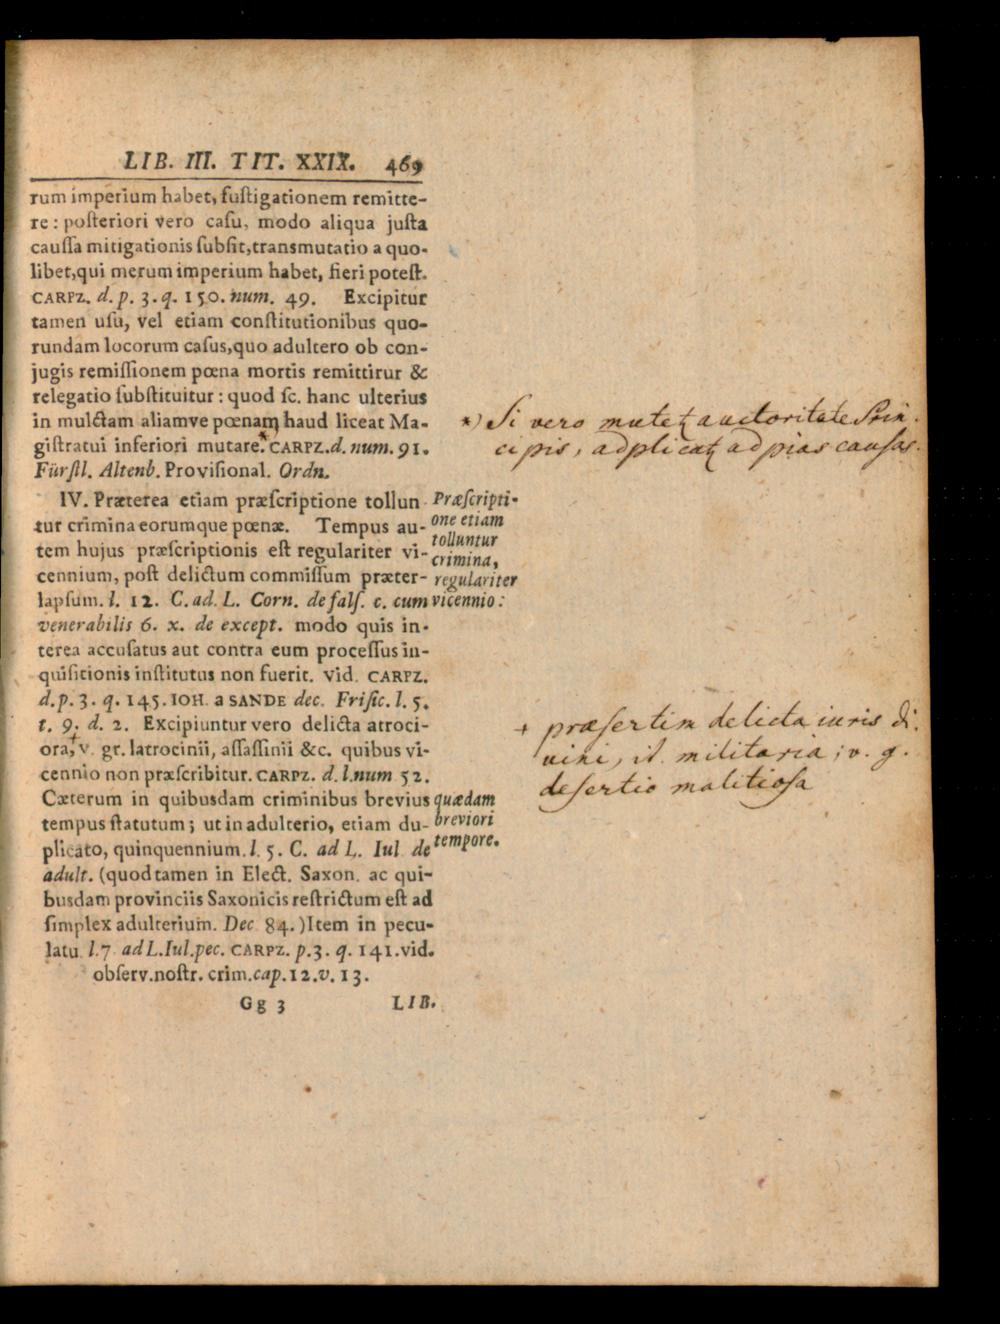 LIB. III. TIT. XXIX. 469
rum imperium habet, fuſtigationem remitte-
re: poſteriori vero caſu, modo aliqua juſta
cauſſa mitigationis ſubſit, transmutatio a quo-
libet, qui merum imperium habet, fieri poteſt.
CARPZ. d. p. 3. q. 150. num. 49. Excipitur
tamen uſu, vel etiam conſtitutionibus quo-
rundam locorum caſus, quo adultero ob con-
jugis remiſſionem pœna mortis remittirur &
relegatio ſubſtituitur: quod ſc. hanc ulterius
in mulctam aliamve pœnam haud liceat Ma-
giſtratui inferiori mutare.* CARPZ. d. num. 91.
Fürſtl. Altenb. Proviſional. Ordn.
*) Si vero mutetꝭ auctoritate Prin-
cipis, adplicatꝭ ad pias causas.
IV. Præterea etiam præſcriptione tollun
tur crimina eorumque pœnæ. Tempus au-
tem hujus præſcriptionis eſt regulariter vi-
cennium, poſt delictum commiſſum præter-
lapſum. l. 12. C. ad. L. Corn. de falſ. c. cum
venerabilis 6. x. de except. modo quis in-
terea accuſatus aut contra eum proceſſus in-
quiſitionis inſtitutus non fuerit. vid. CARPZ.
d. p. 3. q. 145. IOH. a SANDE dec. Friſic. l. 5.
t. 9. d. 2. Excipiuntur vero delicta atroci-
ora,† v. gr. latrocinii, aſſaſſinii &c. quibus vi-
cennio non præſcribitur. CARPZ. d. l. num 52.
Cæterum in quibusdam criminibus brevius
tempus ſtatutum; ut in adulterio, etiam du-
plicato, quinquennium. l. 5. C. ad L. Iul de
adult. (quod tamen in Elect. Saxon. ac qui-
busdam provinciis Saxonicis reſtrictum eſt ad
ſimplex adulterium. Dec 84.) Item in pecu-
latu. l. 7 ad L. Iul. pec. CARPZ. p. 3. q. 141. vid.
obſerv. noſtr. crim. cap. 12. v. 13.
Præſcripti-
one etiam
tolluntur
crimina,
regulariter
vicennio:
+ præsertim delicta iuris di-
vini, it. militaria; v. g.
desertio malitiosa
quædam
breviori
tempore.
Gg 3 LIB.